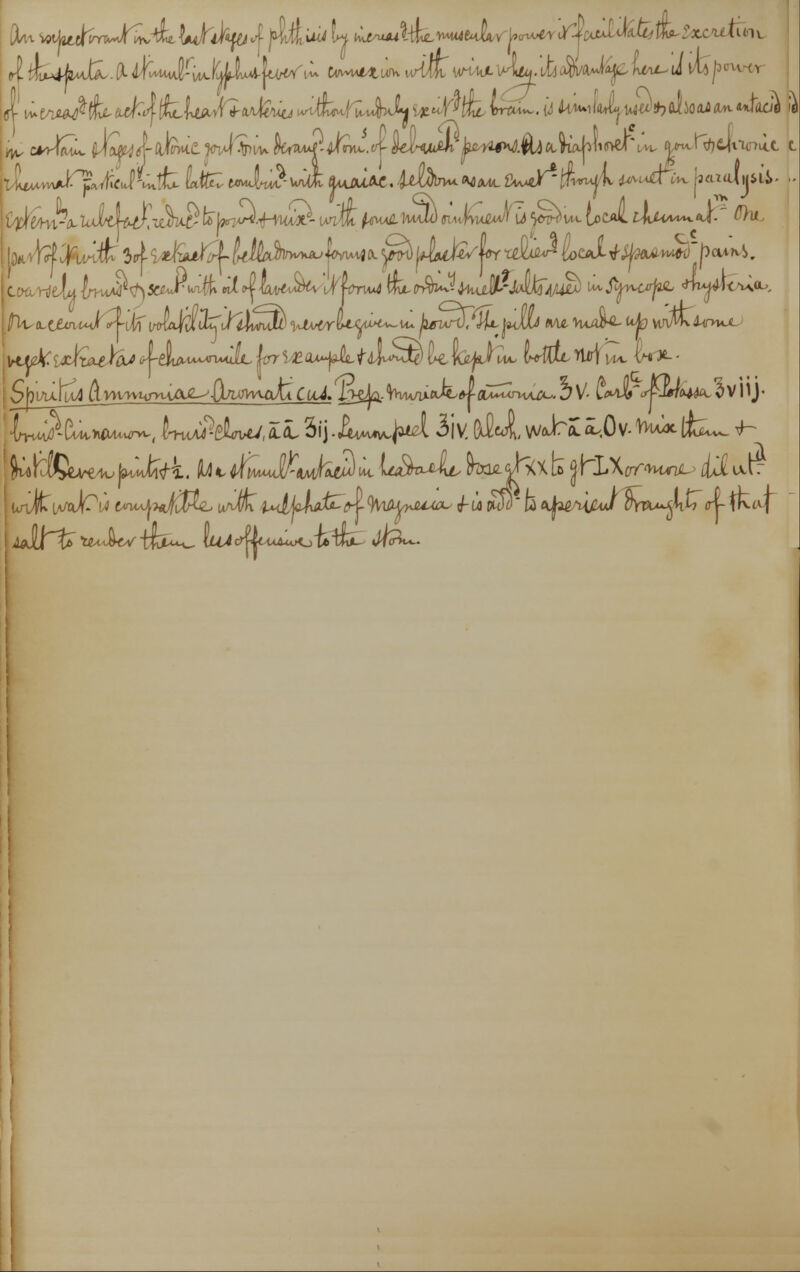 An expectorant in the last stages of phthisis by increasg the muscular power it facilitates the Excretion
of the sputa. A stimult in typhus fever in connexion with wine whey. its advantage here is its power
of increasg the act. of the heart & arteries without unduly excitg the brain. is similarly used & also as an antacid
in certain stages of atonic gout & in derangd stoms. of debauchd persons. As a diaphoretc in gout & chronic
rheumat. particul in the latter combind with guaiac. Seldom as an Emetc though somet in paralysis.
Externy a rubefact. reducd to powd. & mixd with some mild ointment is good in local rheumatm One
part of it with 3 of extract of belladonna forms a good plaster for relievg local & spasmodc pains.
coarsely bruisd & scentd with oil of lavender it forms the ordiny smellg salts used in Syncope & hysteria.
On account of its volatility it should never be given in powd. The pills are made up with some
veget. extract as of chamomile for example & should be kept in bottle not in box.
Spiritus Ammoniae Aromaticus. Prep. Muriate of ammonia. ʒv. Carbc of Potassa ʒviij.
bruisd Cinnamon, bruisd cloves, āā ʒij. Lemon peel ʒiv. Alcoh, wat. āā. Ov. Mix them &
distil Seven pints & ½. As a stimult antacid in headache dose gtXX to gtLX or more dilutd
with wat. is compatible with sulphate of Magnesia & is addd to aperient draughts of that
salt to render them less offensive to the stom.